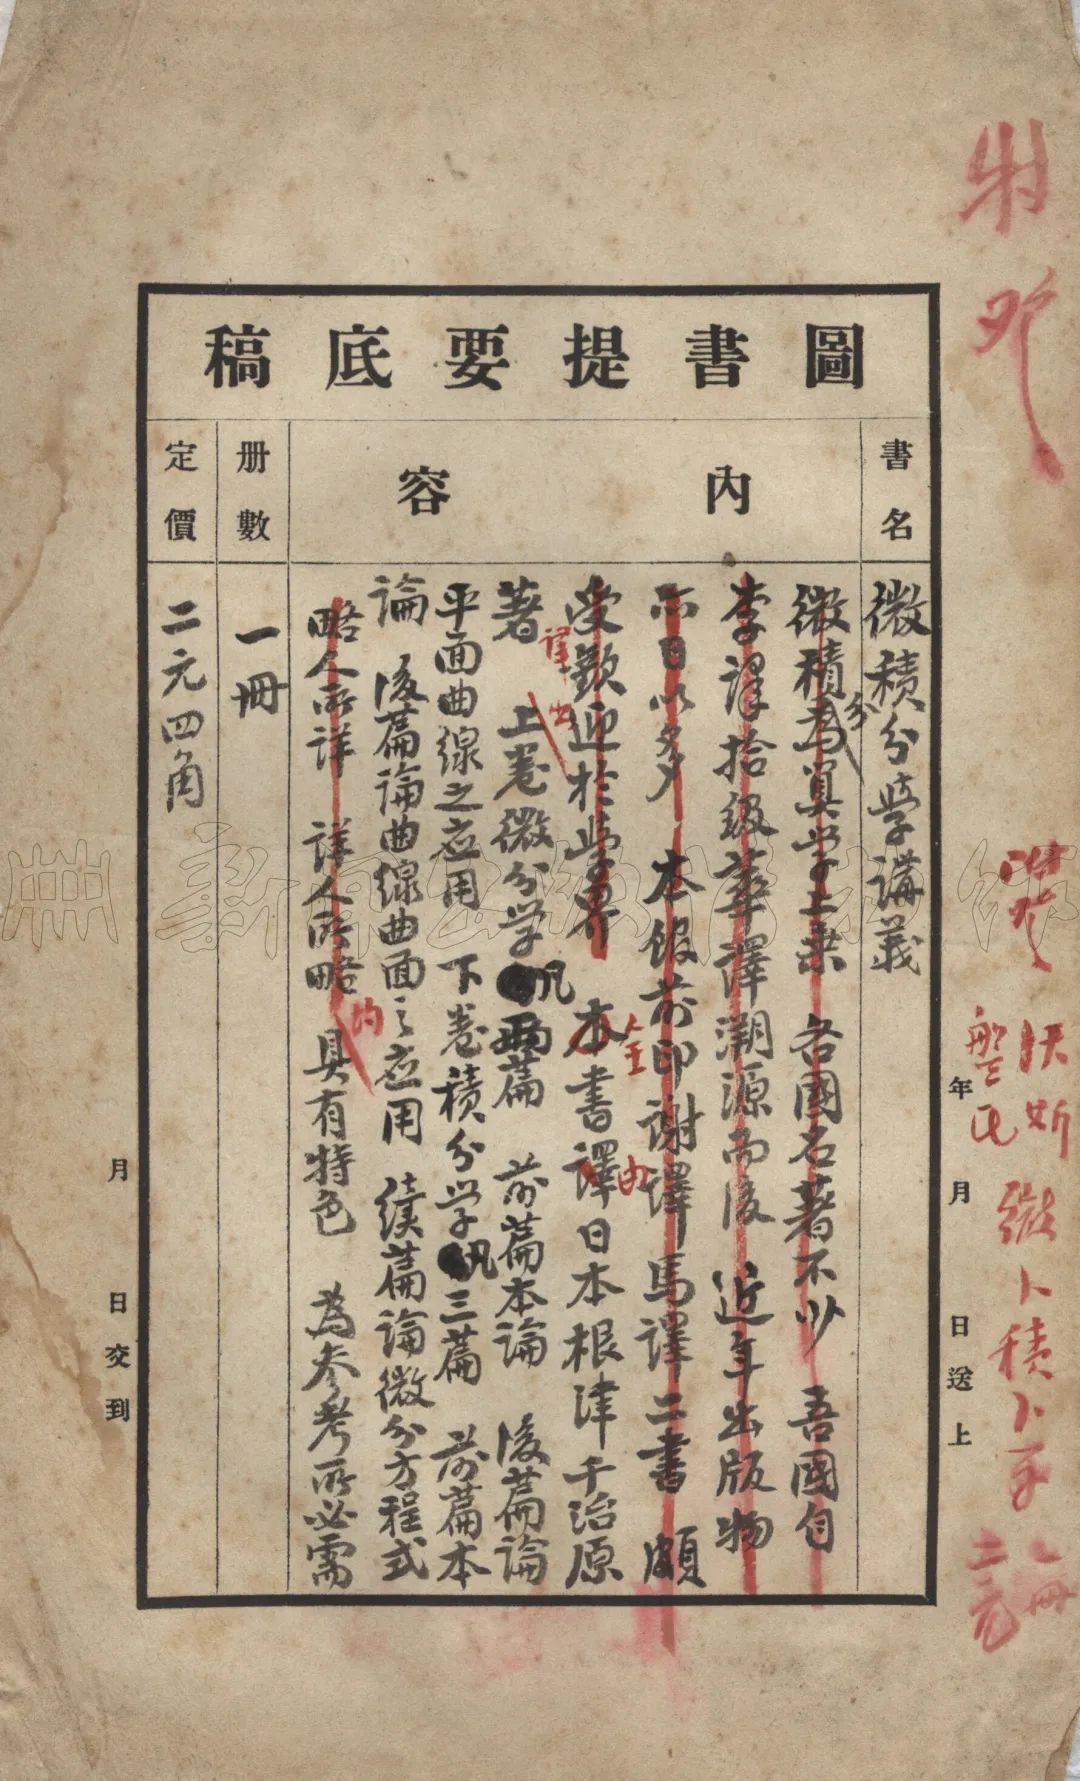 圖書提要底稿
書名
內容
册數
定價
微積分学講義
微積分為算学上乗 各國名著不少 吾國自
李譯拾級華譯溯源而後 近年出版物
亦日以多 本館前印謝譯馬譯二書 頗
受歡迎於学界 本書譯日本根津千治原
著 上卷微分学凡兩篇 前篇本論 後篇論
平面曲線之应用 下卷積分学凡三篇 前篇本
論 後篇論曲線曲面之应用 续篇論微分方程式
略人所详 详人所略 具有特色 為参考所必需
一冊
二元四角
譯出
全
由
均
年 月 日送上
月 日交到
盤氏
一冊
二元